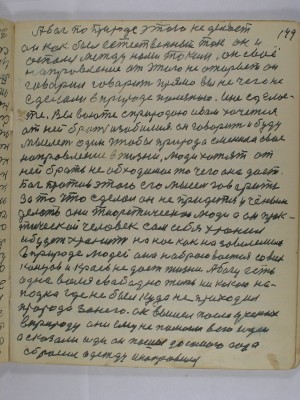 149
А Бог по Природе этого не делает
он как был естественный так он и
остался между нами таким, он своё
направление от этого не отнимет он
говорил говорит прямо вы не чего не
сделали в природе полезного. И не сдела-
ете. Вы воюете с природою и вам хочется
от ней брать изобилия он говорит и буду
мысль один чтобы природа сменила свое
направление в жизни, люди хотят от
ней брать не обходимое то чего она дает.
Бог против этого его мысль говорить
За то что сделал он не придется учёным
делать они теоретические люди а он прак-
тический человек сам себя хранил
и будет хранить на как на завоевание
в природе людей она набрасывается со вих
концов и краев не дает жизни. А Богу есть
одна воля свободно жить ни какого на-
падка где не был куда не приходил
природа за него. он вышел после духовных
в природу они ему не помогли в его идеи
а сказали иди он пошел до самого сода
сбросил одежду и направил